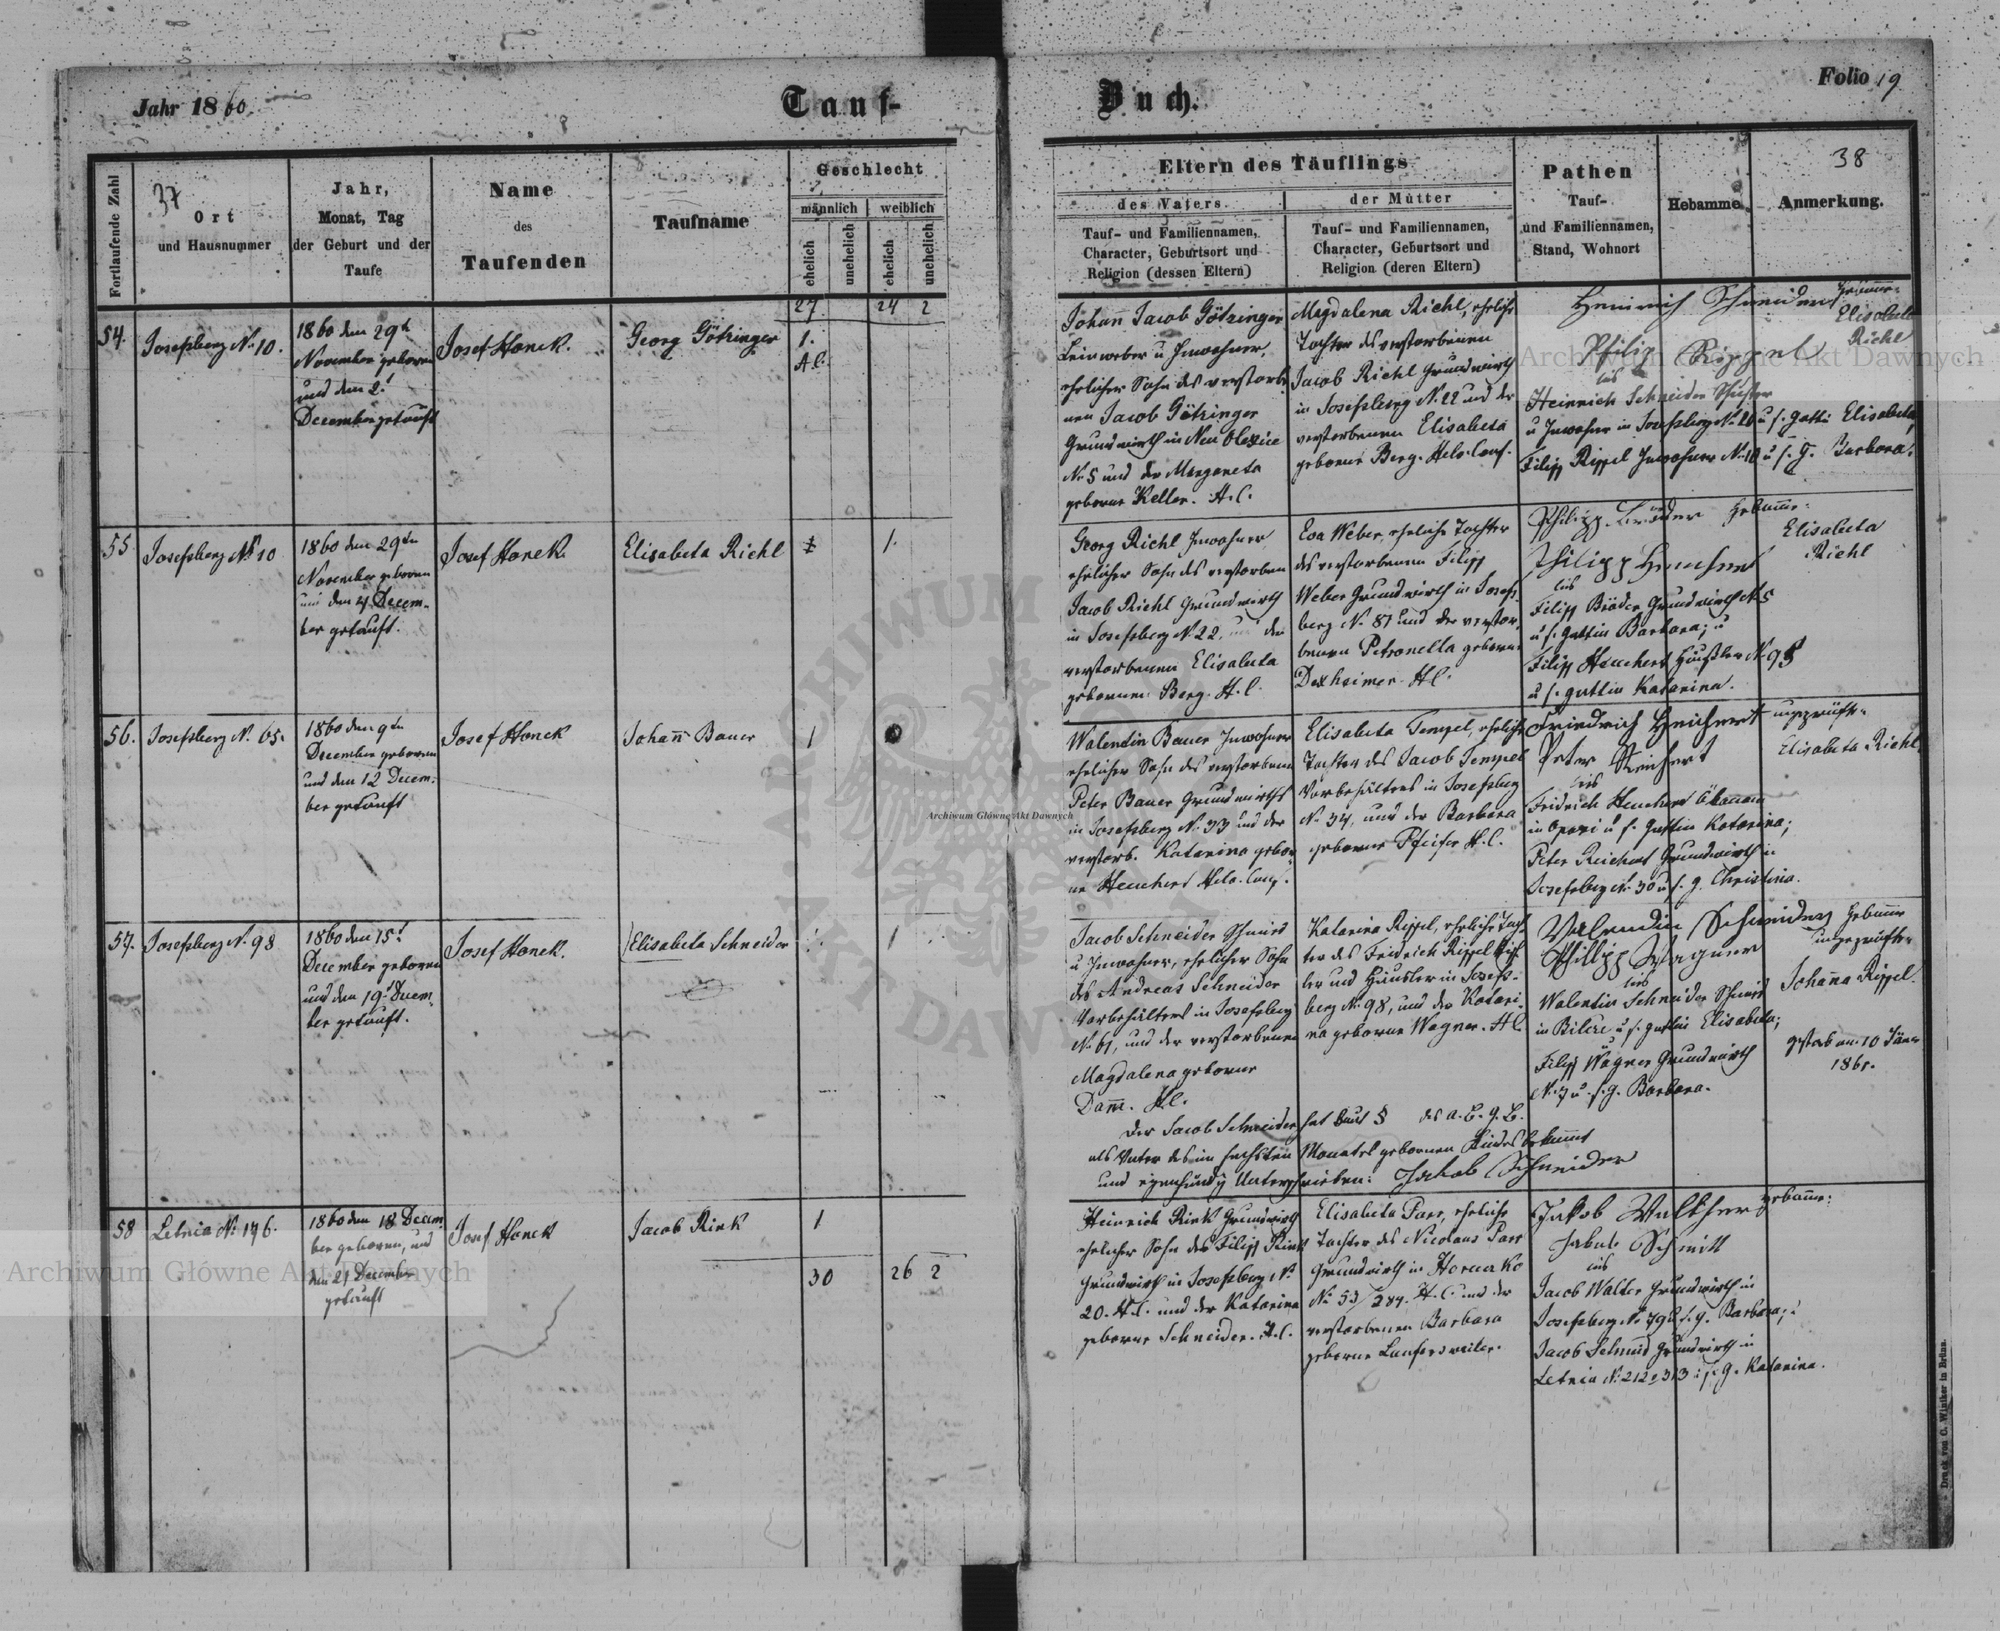 Jahr 1860.
Tauf-
Buch.
Folio 19
Fortlaufende Zahl
37
Ort
und Hausnummer
Jahr,
Monat, Tag
der Geburt und der
Taufe
Name
des
Taufenden
Taufname
Geschlecht
männlich
weiblich
ehelich
unehelich
ehelich
unehelich
Eltern des Täuflings
des Vaters
der Mutter
Tauf- und Familiennamen,
Character, Geburtsort und
Religion (dessen Eltern)
Tauf- und Familiennamen,
Character, Geburtsort und
Religion (deren Eltern)
Pathen
Tauf-
und Familiennamen,
Stand, Wohnort
Hebamme
38
Anmerkung.
27 24 2
54.
Josefsberg No 10.
1860 den 29t
November geboren
und den 2t
December getauft
Josef Honek.
Georg Götzinger
1.
Johann Jacob Götzinger
Leinweber u Inwohner,
ehelicher Sohn des verstorbe
nen Jacob Götzinger
Grundwirth in Neu Olexice
No 5 und der Margareta
geborne Keller. H.C.
Magdalena Riehl, eheliche
Tochter des verstorbenen
Jacob Riehl Grundwirth
in Josefsberg N. 22 und der
verstorbenen Elisabeta
geborne Berg. Helv. Conf.
Heinrich Schneider
Philip Rippel
bis
Heinrich Schneider Schuster
u Inwohner in Josefsberg No 20 u s. gattin Elisabeta,
Filipp Rippel Inwohner No 10 u s. G. Barbara.
Hebamme:
Elisabeta
Riehl
55
Josefsberg No 10
1860 den 29tn
November geboren
und den 4 Decem-
ber getauft.
Josef Honek.
Elisabeta Riehl
1.
Georg Riehl Inwohner,
ehelicher Sohn des verstorben
Jacob Riehl Grundwirth
in Josefsberg N 22, und der
verstorbenen Elisabeta
gebornen Berg. H.C.
Eva Weber, eheliche Tochter
des verstorbenen Filipp
Weber Grundwirth in Josefs-
berg No 87 und der verstor-
benen Petronella geborne
Dexheimer. H.C.
Philipp Bräder
Philipp Heuchert
bis
Filipp Bräder Grundwirth No 5
u s. gattin Barbara; u
Filipp Heuchert Häusler No 95
u s. gattin Katarina.
Hebamme:
Elisabeta
Riehl
56.
Josefsberg N. 65.
1860 den 9tn
December geboren
und den 12 Decem-
ber getauft
Josef Honek
Johann Bauer
1
Walentin Bauer Inwohner
ehelicher Sohn des verstorbenen
Peter Bauer Grundwirths
in Josefsberg No 33 und der
verstorb. Katarina gebor-
ne Heuchert Helv. Conf.
Elisabeta Tempel, eheliche
Tochter des Jacob Tempel
Vorbehälters in Josefsberg
No 34, und der Barbara
geborne Pfeifer H.C.
Friedrich Heichert
Peter Reichert
bis
Fridrich Heuchert Ökonom
in Opari u s. Gattin Katarina;
Peter Reichert Grundwirth in
Josefsberg N. 30 u s. g. Christina.
ungeprüfte
Elisabeta Riehl.
57.
Josefsberg No 98
1860 den 15t
December geboren
und den 19t Decem-
ber getauft.
Josef Honek.
Elisabeta Schneider
1
Jacob Schneider Schmied
u Inwohner, ehelicher Sohn
des Andreas Schneider
Vorbehälters in Josefsberg
No 61, und der verstorbenen
Magdalena geborne
Damm. H.C.
Katarina Rippel, eheliche Toch-
ter des Fridrich Rippel Tisch-
ler und Häusler in Josefs-
berg No 98, und der Katari-
na geborne Wagner. H.C.
Valendin Schneider
Phillipp Wagner
bis
Walentin Schneider Schmied
in Bilcze u s. gattin Elisabeta;
Filipp Wagner Grundwirth
No 7 u s. g. Barbara.
Hebamme
ungeprüfte
Johanna Rippel.
gestorb am 10 Jäner
1861.
Der Jacob Schneider hat laut § des a. B. G. B.
als Vater des im sechsten Monate gebornen Kindes bekannt
und eigenhändig Unterschrieben: Jakob Schneider
58
Letnia No 146.
1860 den 18 Decem-
ber geboren, und
den 21 December
getauft
Josef Honek
Jacob Rink
1
30 26 2
Heinrich Rink Grundwirth
ehelicher Sohn des Filipp Rink
Grundwirth in Josefsberg N.
20. H.C. und der Katarina
geborne Schneider. H.C.
Elisabeta Parr, eheliche
Tochter des Nicolaus Parr
Grundwirth in Horucko
No 53/284. H.C. und der
verstorbenen Barbara
geborne Laufersweiler.
Jakob Walther
Jakob Schmitt
bis
Jacob Walter Grundwirth in
Josefsberg No 79 u s. g. Barbara; u
Jacob Schmid Grundwirth in
Letnia No 212 313 u s. g. Katarina.
Hebamme:
Druck von C. Winiker in Brünn.
Archiwum Główne Akt Dawnych
Archiwum Główne Akt Dawnych
Archiwum Główne Akt Dawnych